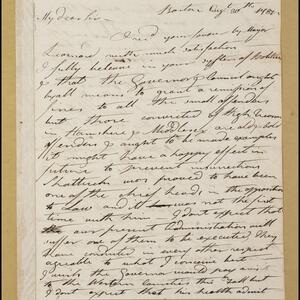 Boston Augt 20th 1787
My dear Sir
I recd your favour by Major
Leonard with much satisfaction
I fully believe in your opinion of
that the Governor & Council ought
by all means to grant a remission of
fines to all the small offenders
but those convicted of High Treason
in Hampshire & Middlesex are old
offenders & ought to be made examples
it might have a happy effect in
future to prevent insurrections
Shattuck was proved to have been
one of the chief heads, in the opposition
to Law and it was not the first
time with him I dont expect that
our present administration will
suffer one of them to be executed they
have conducted in every other respect
agreeable to what I conceive but
I wish the Governor would pay
to the Western Counties the
I dont expect that his health admit